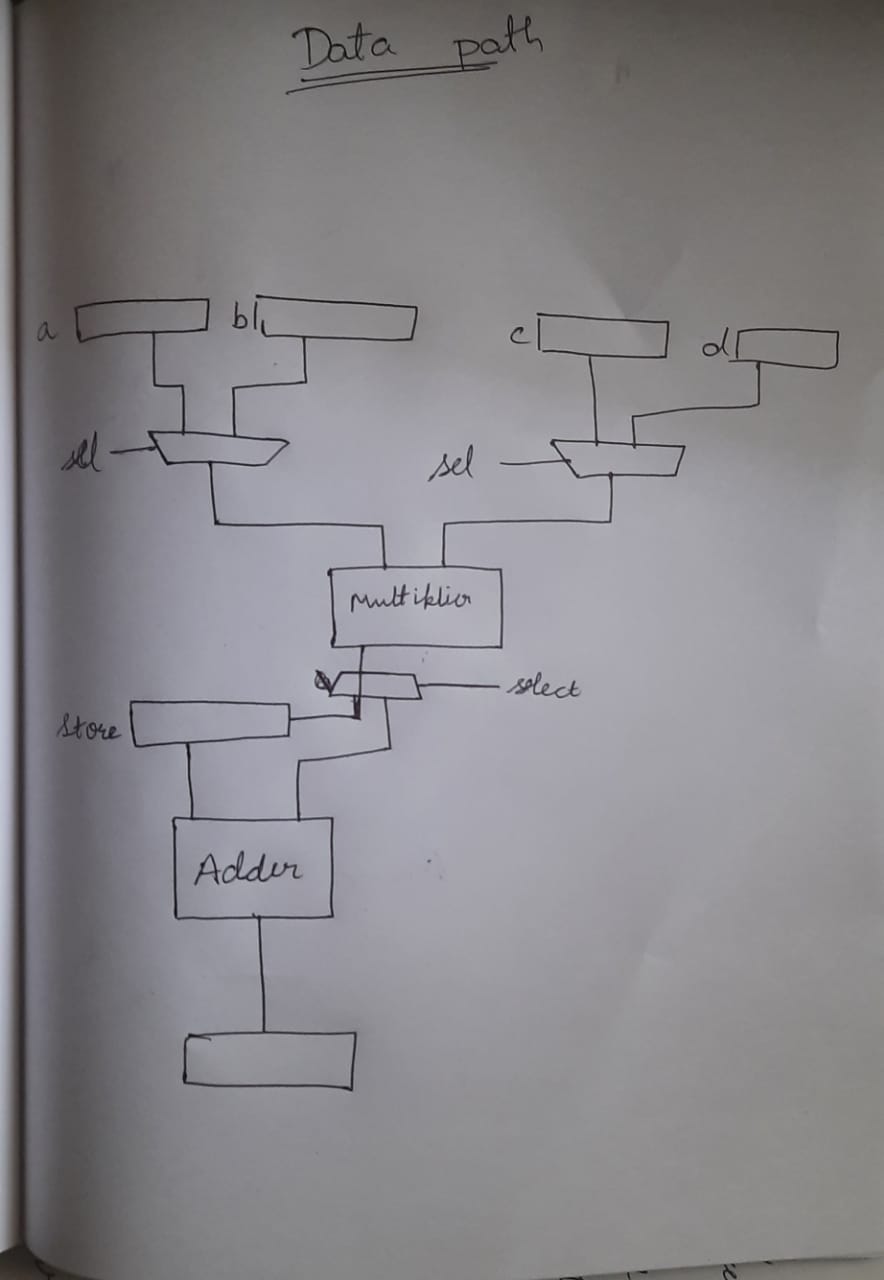 Data path
a
b
c
d
sel
sel
Multiplier
select
Store
Adder